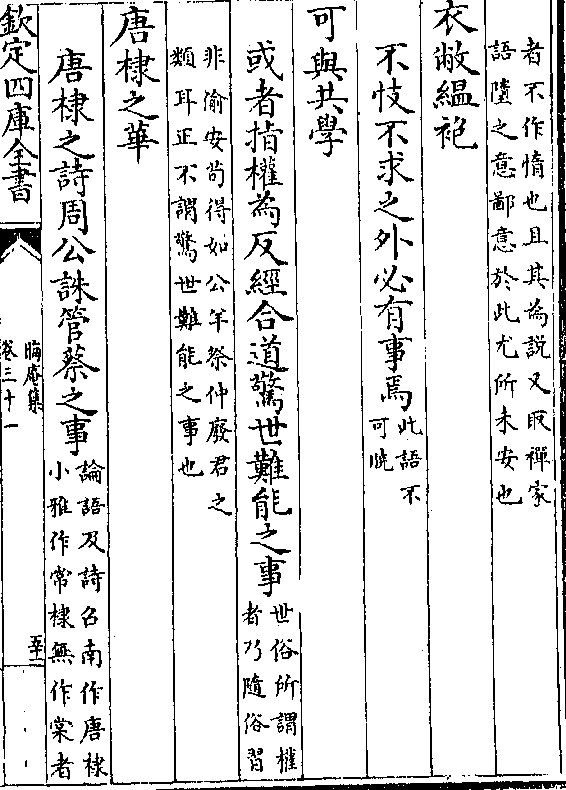 者不作惰也且其為説又取禪家
語墮之意鄙意於此尤所未安也
衣敝緼袍
不忮不求之外必有事焉此語不
可曉
可與共學
或者指權為反經合道驚世難能之事世俗所謂權
者乃隨俗習
非偷安苟得如公羊祭仲廢君之
類耳正不謂驚世難能之事也
唐棣之華
唐棣之詩周公誅管蔡之事論語及詩召南作唐棣
小雅作常棣無作棠者
欽定四庫全書
晦庵集
卷三十一